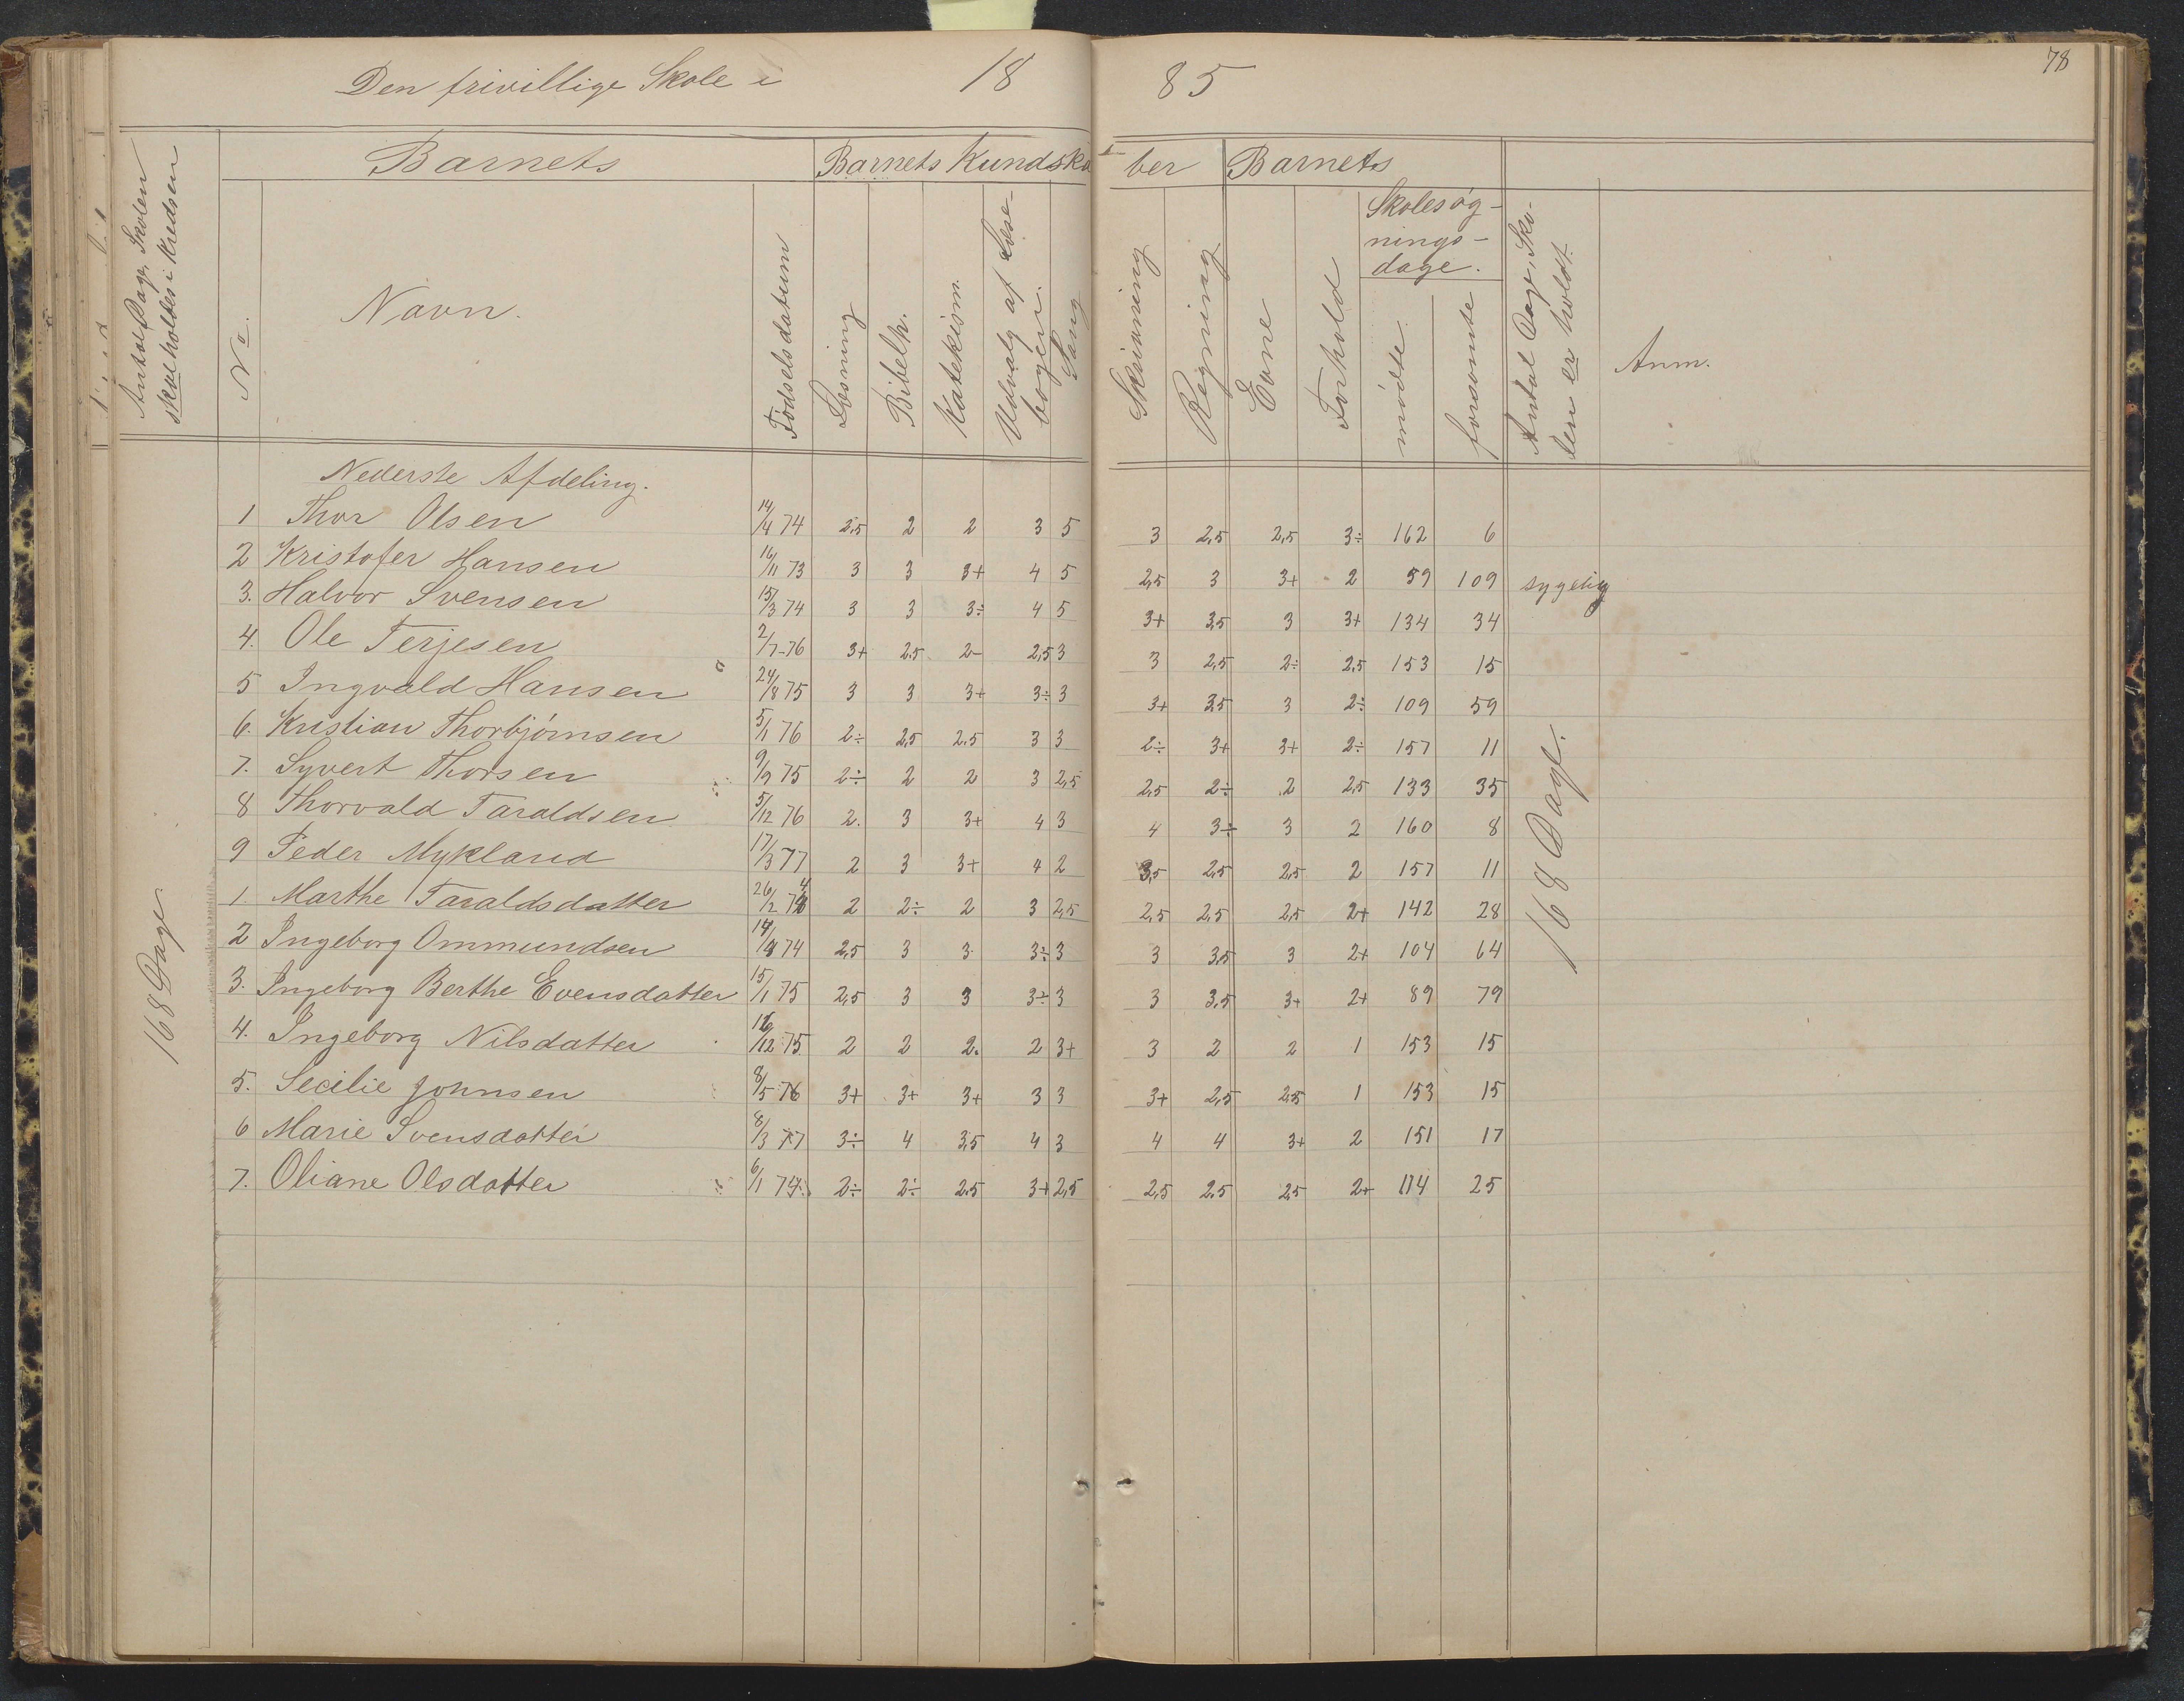 Den frivillige Skole i 18 85
78
Antal Dage, Skolen
skal holdes i Kredsen
Barnets
Barnets Kundska-
ber
Barnets
No.
Navn.
Fødselsdatum
Læsning
Bibelh.
Katekism.
Udvalg af Læse-
bogen.
Sang
Skrivning
Regning
Evne
Forhold
Skolesøg-
nings-
dage.
mødte
forsømte
Antal Dage, Sko-
len er holdt.
Anm.
Nederste Afdeling.
1 Thor Olsen 14/4 74 2,5 2 2 3 5 3 2,5 2,5 3÷ 162 6
2 Kristofer Hansen 16/11 73 3 3 3+ 4 5 2,5 3 3+ 2 59 109 sygelig
3. Halvor Svensen 15/3 74 3 3 3÷ 4 5 3+ 3,5 3 3+ 134 34
4. Ole Terjesen 2/7-76 3+ 2,5 2- 2,5 3 3 2,5 2÷ 2,5 153 15
5 Ingvald Hansen 24/8 75 3 3 3+ 3÷ 3 3+ 3,5 3 2÷ 109 59
6. Kristian Thorbjørnsen 5/1 76 2÷ 2,5 2,5 3 3 2÷ 3+ 3+ 2÷ 157 11
7. Syvert Thorsen 9/9 75 2÷ 2 2 3 2,5 2,5 2÷ 2 2,5 133 35
8 Thorvald Taraldsen 5/12 76 2. 3 3+ 4 3 4 3÷ 3 2 160 8
9 Peder Mykland 17/3 77 2 3 3+ 4 2 3,5 2,5 2,5 2 157 11
1. Marthe Taraldsdatter 26/2 74 2 2÷ 2 3 2,5 2,5 2,5 2,5 2+ 142 28
2 Ingeborg Ommundsen 14/4 74 2,5 3 3 3÷ 3 3 3,5 3 2+ 104 64
3. Ingeborg Berthe Evensdatter 15/1 75 2,5 3 3 3÷ 3 3 3,5 3+ 2+ 89 79
4. Ingeborg Nilsdatter 16/12 75 2 2 2. 2 3+ 3 2 2 1 153 15
5. Secilie Johnsen 8/5 76 3+ 3+ 3+ 3 3 3+ 2,5 2,5 1 153 15
6 Marie Svensdatter 8/3 77 3÷ 4 3,5 4 3 4 4 3+ 2 151 17
7. Oliane Olsdatter 6/1 74 2÷ 2÷ 2,5 3+ 2,5 2,5 2,5 2,5 2+ 114 25
168 Dage
168 Dage.